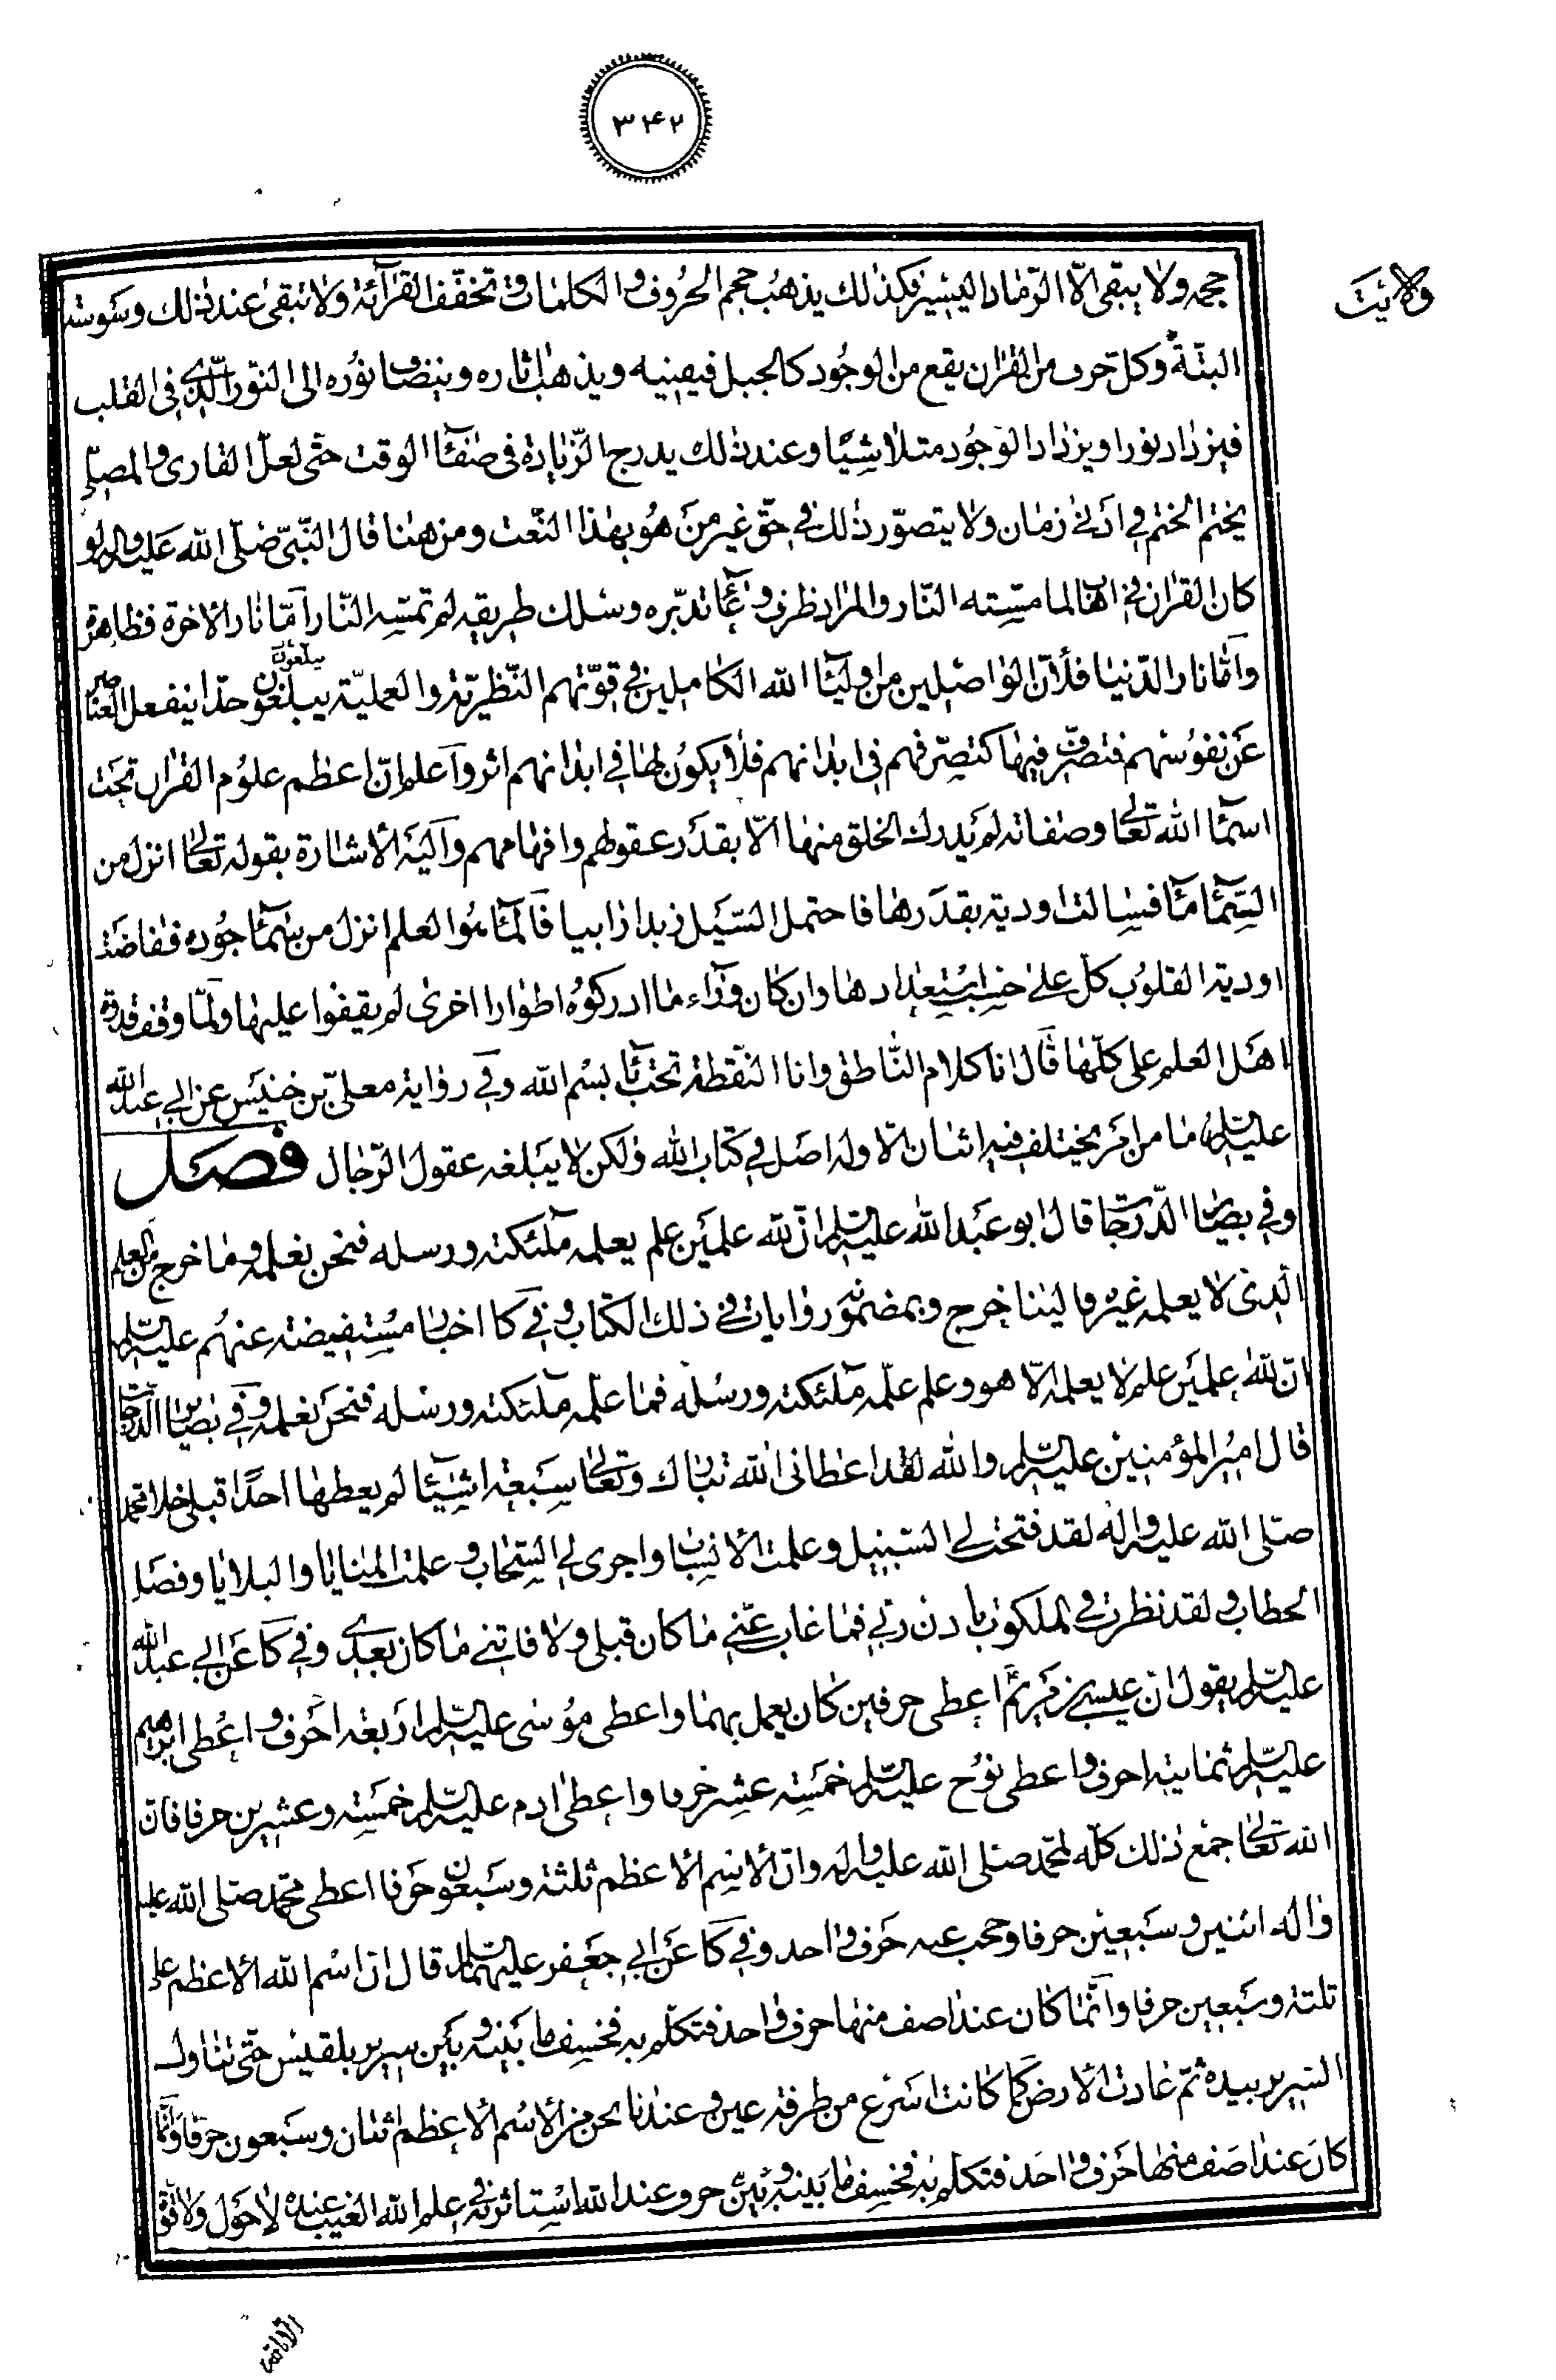 ۳۴۲
ولایت
حجمه ولا يبقى الّا الرّماد اليسير فكذلك يذهب حجم الحروف والكلمات وتخفّف القرائة ولا تبقى عند ذلك وسوسة
البتّة وكلّ حرف من القران يقع من الوجود كالجبل فيفنيه ويذهب اثاره وينضاف نوره الى النّور الّذى فى القلب
فيزداد نورا ويزداد الوجود متلاشيا وعند ذلك يدرج الزّيادة فى صفاء الوقت حتّى لعلّ القارى والمصلّى
يختم الختم فى ادنى زمان ولا يتصوّر ذلك فى حقّ غير من هو بهذا النّعت ومن هنا قال النّبىّ صلّى الله عليه واله لو
كان القران فى اهاب لما مسّته النّار والمراد ظرف وعاء تدبّره وسلك طريقه لم تمسّه النّار امّا نار الاخرة فظاهرة
وامّا نار الدّنيا فلانّ الواصلين من اولياء الله الكاملين فى قوّتهم النّظريّة والعمليّة يبلغون حدّا ينفعل العناصر
عن نفوسهم فتصرّف فيها كتصرّفهم فى ابدانهم فلا يكون لها فى ابدانهم اثر واعلم انّ اعظم علوم القران تحت
اسماء الله تعالى وصفاته لم يدرك الخلق منها الّا بقدر عقولهم وافهامهم واليه الاشارة بقوله تعالى انزل من
السّماء ماء فسالت اودية بقدرها فاحتمل السّيل زبدا رابيا فالماء هو العلم انزل من سماء جوده ففاضت
اودية القلوب كلّ على حسب استعدادها وان كان وراء ما ادركوه اطوارا اخرى لم يقفوا عليها ولمّا وقف قدوة
اهل العلم على كلّها قال انا كلام النّاطق وانا النّقطة تحت باء بسم الله وفى رواية معلّى بن خنيس عن ابى عبد الله
عليه السّلم ما من امر يختلف فيه اثنان الّا وله اصل فى كتاب الله ولكن لا يبلغه عقول الرّجال فصل
وفى بصائر الدّرجات قال ابو عبد الله عليه السّلم انّ لله علمين علم يعلمه ملئكته ورسله فنحن نعلمه وما خرج من العلم
الّذى لا يعلمه غيره فالينا خرج وبمضمونه روايات فى ذلك الكتاب وفى كا اخبار مستفيضة عنهم عليه السّلم
انّ لله علمين علم لا يعلمه الّا هو وعلم علّمه ملئكته ورسله فما علّمه ملئكته ورسله فنحن نعلمه وفى بصائر الدّرجات
قال امير المؤمنين عليه السّلم والله لقد اعطانى الله تبارك وتعالى سبعة اشياء لم يعطها احدًا قبلى خلا محمد
صلّى الله عليه واله لقد فتحت لى السّبيل وعلمت الانساب واجرى لى السّحاب وعلمت المنايا والبلايا وفصل
الخطاب ولقد نظرت فى الملكوت باذن ربّى فما غاب عنّى ما كان قبلى ولا فاتنى ما كان بعدى وفى كا عن ابى عبد الله
عليه السّلم يقول ان عيسى بن مريم اعطى حرفين كان يعمل بهما واعطى موسى عليه السّلم اربعة احرف واعطى ابرهيم
عليه السّلم ثمانية احرف واعطى نوح عليه السّلم خمسة عشر حرفا واعطى ادم عليه السّلم خمسة وعشرين حرفا فان
الله تعالى جمع ذلك كلّه لمحمّد صلّى الله عليه واله وانّ الاسم الاعظم ثلثة وسبعون حرفا اعطى محمّد صلّى الله عليه
واله اثنين وسبعين حرفا وحجب عنه حرف واحد وفى كا عن ابى جعفر عليهما السّلم قال ان اسم الله الاعظم على
ثلثة وسبعين حرفا وانّما كان عند اصف منها حرف واحد فتكلّم به فخسف ما بينه وبين سرير بلقيس حتّى تناول
السّرير بيده ثمّ عادت الارض كما كانت اسرع من طرفة عين وعندنا نحن من الاسم الاعظم اثنان وسبعون حرفا وانّما
كان عند اصف منها حرف واحد فتكلّم به فخسف ما بينه وبين حرف عند الله استاثر به فى علم الله الغيب عنده لا حول ولا قوّة